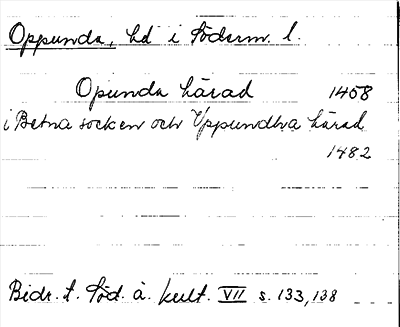 Oppunda, hd i Söderm. l.
Opunda härad 1458
i Betna socken och Uppundha härad
1482
Bidr. t. Söd. ä. kult. VII s. 133, 138